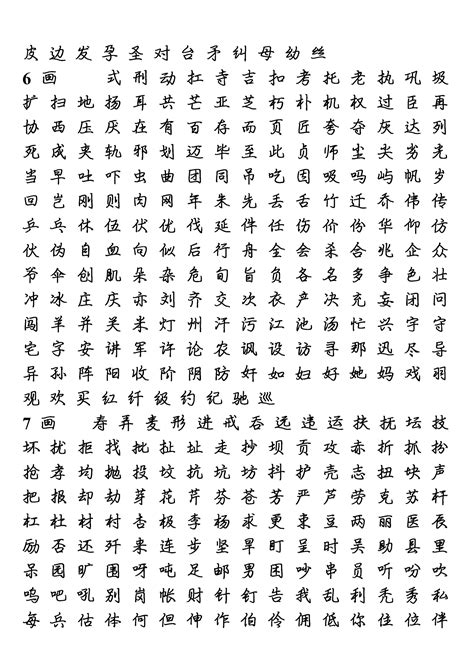 皮 边 发 孕 圣 对 台 矛 纠 母 幼 丝
6 画 式 刑 动 扛 寺 吉 扣 考 托 老 执 巩 圾
扩 扫 地 扬 耳 共 芒 亚 芝 朽 朴 机 权 过 臣 再
协 西 压 厌 在 有 百 存 而 页 匠 夸 夺 灰 达 列
死 成 夹 轨 邪 划 迈 毕 至 此 贞 师 尘 尖 劣 光
当 早 吐 吓 虫 曲 团 同 吊 吃 因 吸 吗 屿 帆 岁
回 岂 刚 则 肉 网 年 朱 先 丢 舌 竹 迁 乔 伟 传
乒 乓 休 伍 伏 优 伐 延 件 任 伤 价 份 华 仰 仿
伙 伪 自 血 向 似 后 行 舟 全 会 杀 合 兆 企 众
爷 伞 创 肌 朵 杂 危 旬 旨 负 各 名 多 争 色 壮
冲 冰 庄 庆 亦 刘 齐 交 次 衣 产 决 充 妄 闭 问
闯 羊 并 关 米 灯 州 汗 污 江 池 汤 忙 兴 宇 守
宅 字 安 讲 军 许 论 农 讽 设 访 寻 那 迅 尽 导
异 孙 阵 阳 收 阶 阴 防 奸 如 妇 好 她 妈 戏 羽
观 欢 买 红 纤 级 约 纪 驰 巡
7 画 寿 弄 麦 形 进 戒 吞 远 违 运 扶 抚 坛 技
坏 扰 拒 找 批 扯 址 走 抄 坝 贡 攻 赤 折 抓 扮
抢 孝 均 抛 投 坟 抗 坑 坊 抖 护 壳 志 扭 块 声
把 报 却 劫 芽 花 芹 芬 苍 芳 严 芦 劳 克 苏 杆
杠 杜 材 村 杏 极 李 杨 求 更 束 豆 两 丽 医 辰
励 否 还 歼 来 连 步 坚 旱 盯 呈 时 吴 助 县 里
呆 园 旷 围 呀 吨 足 邮 男 困 吵 串 员 听 吩 吹
呜 吧 吼 别 岗 帐 财 针 钉 告 我 乱 利 秃 秀 私
每 兵 估 体 何 但 伸 作 伯 伶 佣 低 你 住 位 伴